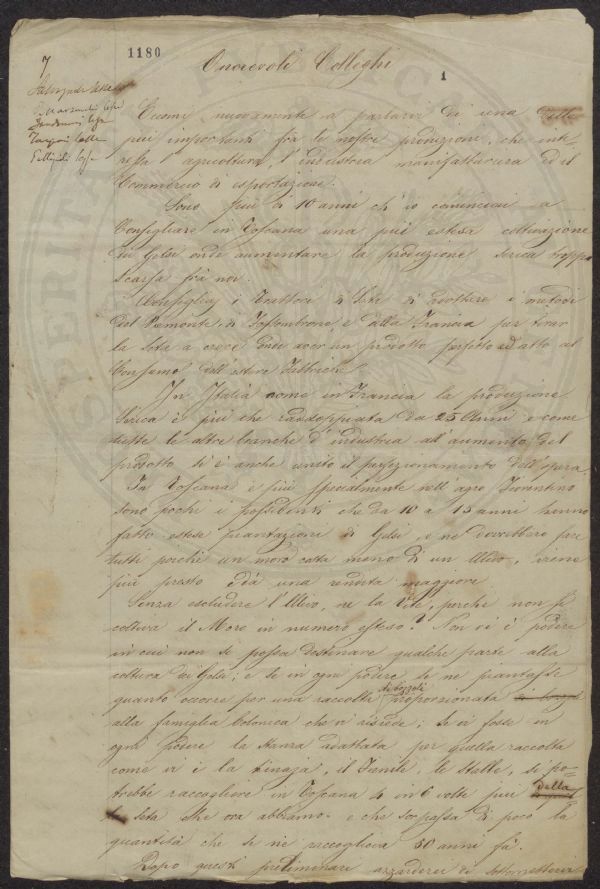 1180
7
1
Onorevoli Colleghi
Targioni lesse
Eccomi nuovamente a parlarvi di una delle
più importanti fra le nostre produzione, che inte-
ressa l'agricoltura, l'industria manifatturiera ed il
Commercio di esportazione.
Sono più di 10 anni ch'io cominciai a
Consigliare in Toscana una più estesa coltivazione
di Gelsi onde aumentare la produzione serica troppo
scarsa frà noi.
Consigliai i Trattori di Seta di adottare i metodi
del Piemonte, di Fossombrone, e della Francia per tirar
la seta a croce onde aver un prodotto perfetto ed atto al
Consumo dell'estere Fabbriche.
In Italia come in Francia la produzione
Serica è più che raddoppiata da 25 Anni e come
tutte le altre branche d'industria all'aumento del
prodotto si è anche unito il perfezionamento dell'opera.
In Toscana e più specialmente nell'agro Fiorentino
sono pochi i possidenti che da 10 a 15 anni hanno
fatto estese piantazioni di Gelsi, e ne dovrebbero fare
tutti perchè un moro costa meno di un Ulivo, viene
più presto e dà una rendita maggiore
Senza escludere l'Ulivo, ne la Vite, perchè non si
coltiva il Moro in numero esteso? Non vi è podere
in cui non si possa destinare qualche parte alla
coltura dei Gelsi; e se in ogni podere se ne piantasse
di bozzoli
quanto occorre per una raccolta proporzionata
alla famiglia Colonica che vi risiede; se vi fosse in
ogni podere la stanza adattata per quella raccolta
come vi è la tinaja, il Fienile, le stalle, si po-
trebbe raccogliere in Toscana 4 in 6 volte più della
seta che ora abbiamo e che sorpassa di poco la
quantità che se ne raccoglieva 50 anni fa.
Dopo questi preliminari azzarderei di sottomettervi